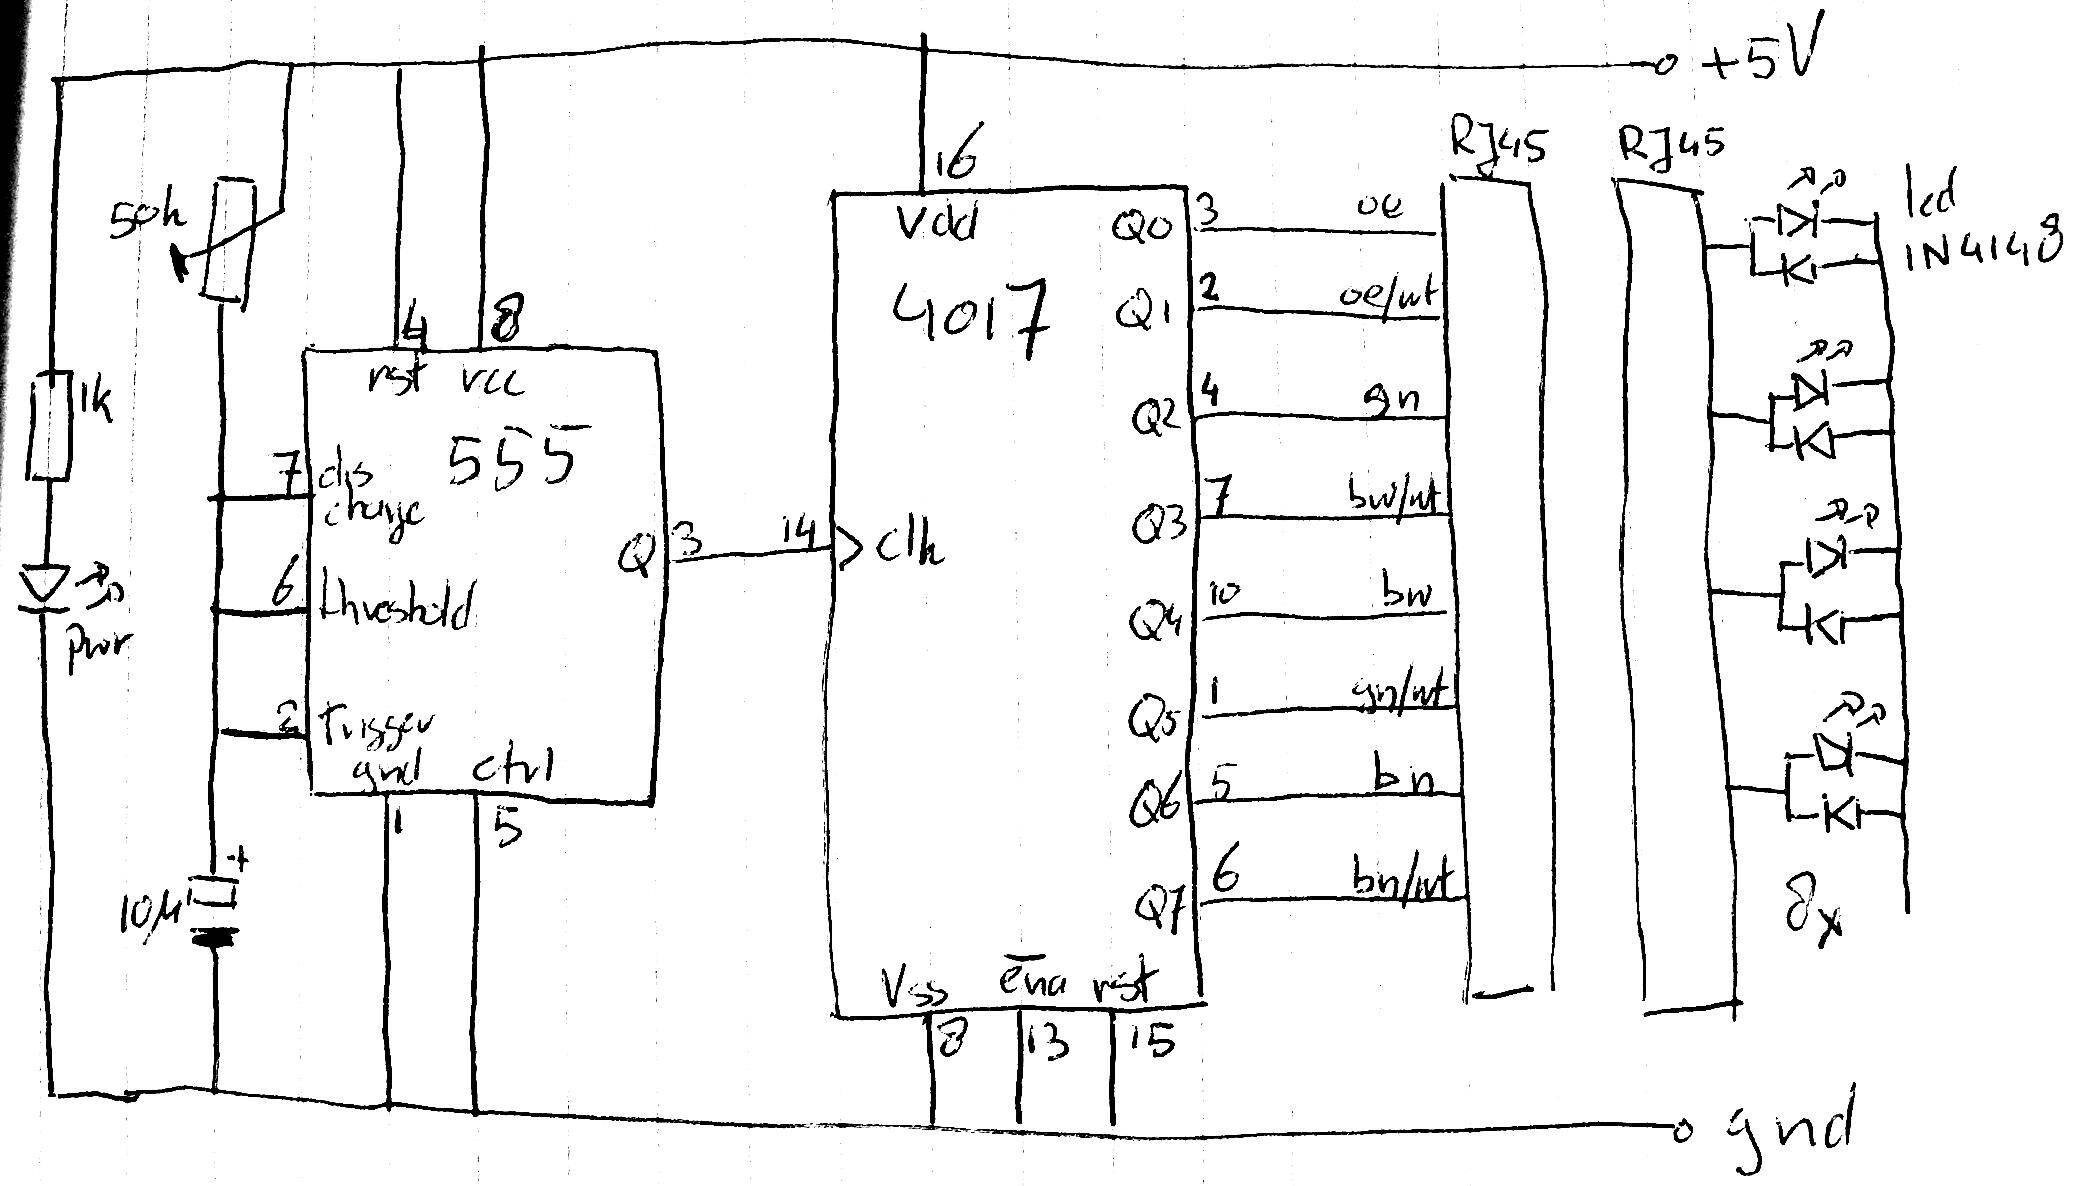 +5V
RJ45
RJ45
16
led
1N4148
50k
Vdd
Q0
3
oe
4017
Q1
2
oe/wt
4
8
rst
vcc
1k
Q2
4
gn
555
7
dis
charge
Q3
7
bw/wt
Q
3
14
clk
6
threshold
Q4
10
bw
pwr
2
trigger
Q5
1
gn/wt
gnd
ctrl
Q6
5
bn
1
5
+
10µ
Q7
6
bn/wt
8x
Vss
ena
rst
8
13
15
gnd